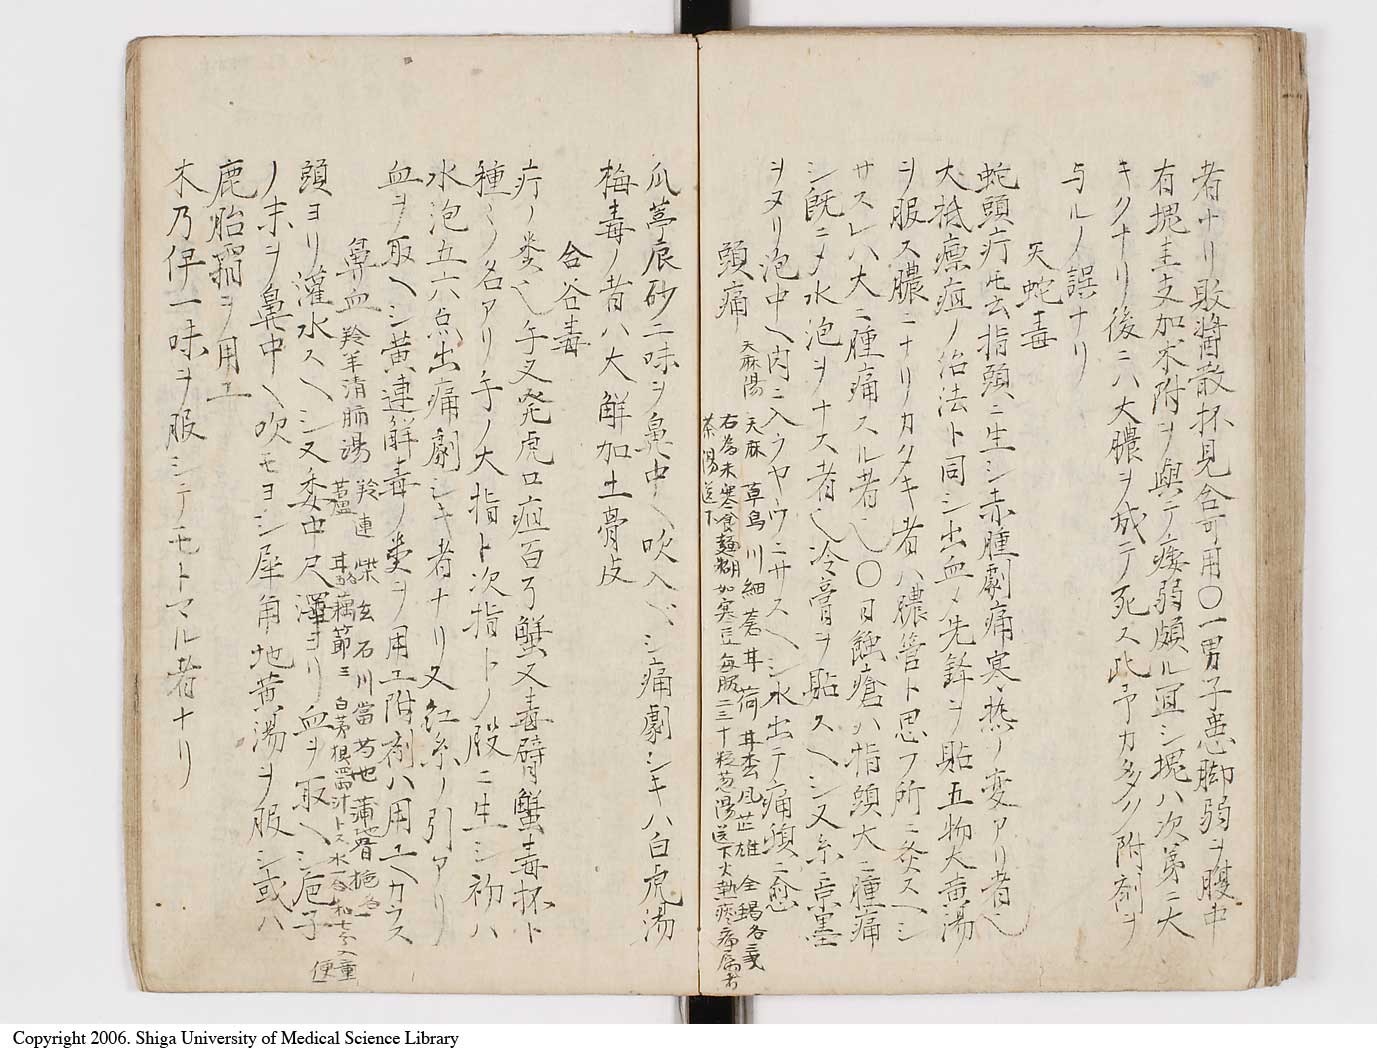 者ナリ敗醬散抔見合可用〇一男子患脚弱ヲ腹中
有塊圭支加朮附ヲ與テ痿弱頗ル宜シ塊ハ次第ニ大
キクナリ後ニハ大膿ヲ成テ死ス此予カ多ク附剤ヲ
与ルノ誤ナリ
天蛇毒
蛇頭疔𪜈云指頭ニ生シ赤腫劇痛寒熱ノ変アリ者也
大抵瘭疽ノ治法ト同シ出血〆先鋒ヲ貼五物大黄湯
ヲ服ス膿ニナリカタキ者ハ膿管ト思フ所ニ灸スヘシ
サスレハ大ニ腫痛スル者也〇日蝕瘡ハ指頭大ニ腫痛
シ既ニ〆水泡ヲナス者也冷膏ヲ貼スヘシ又糸ニ京墨
ヲヌリ泡中ヘ肉ニ入ラヤウニサスヘシ水出テ痛頓ニ愈
頭痛 天麻湯 天麻 草烏 川 細 蒼 甘 荷 甘杢凡芷雄 全蝎各三戔
右為末寒食麺糊如寒豆毎服二三十粒葱湯送下火熱疼痛属者
茶湯送下
瓜蔕辰砂二味ヲ鼻中ヘ吹入ベシ痛劇シキハ白虎湯
梅毒ノ者ハ大解加土骨皮
合谷毒
疔ノ類也手叉発虎口疽百丂蟹又毒臂蟹毒抔ト
種〻ノ名アリ手ノ大指ト次指トノ股ニ生シ初ハ
水泡五六点出痛劇シキ者ナリ又紅糸ノ引アリ
血ヲ取ヘシ黄連解毒ノ類ヲ用工附剤ハ用ユヘカラス
鼻血 羚羊清肺湯 羚 連 柴 玄 石 川 當 芍 地 蒲 地骨 梔
蘆 甘 藕節三 白茅根 汁トス水一合 和七分入童
便
頭ヨリ灌水スヘシ又委中尺澤ヨリ血ヲ取ヘシ巵子
ノ末ヲ鼻中ヘ吹モヨシ犀角地黄湯ヲ服シ或ハ
鹿胎霜ヲ用工
木乃伊一味ヲ服シテモトマル者ナリ
Copyright 2006. Shiga University of Medical Science Library